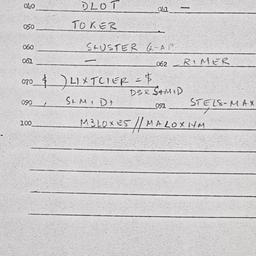 040 DLOT 041 —
050 TOKER
060 SLUSTER G-AP
061 — 062 RIMER
070 $ ) LIXTCIER = $
DSR S4MID
090 SLMIDI 091 STELS-MAX
100 M3LOXES // MALOXIVM